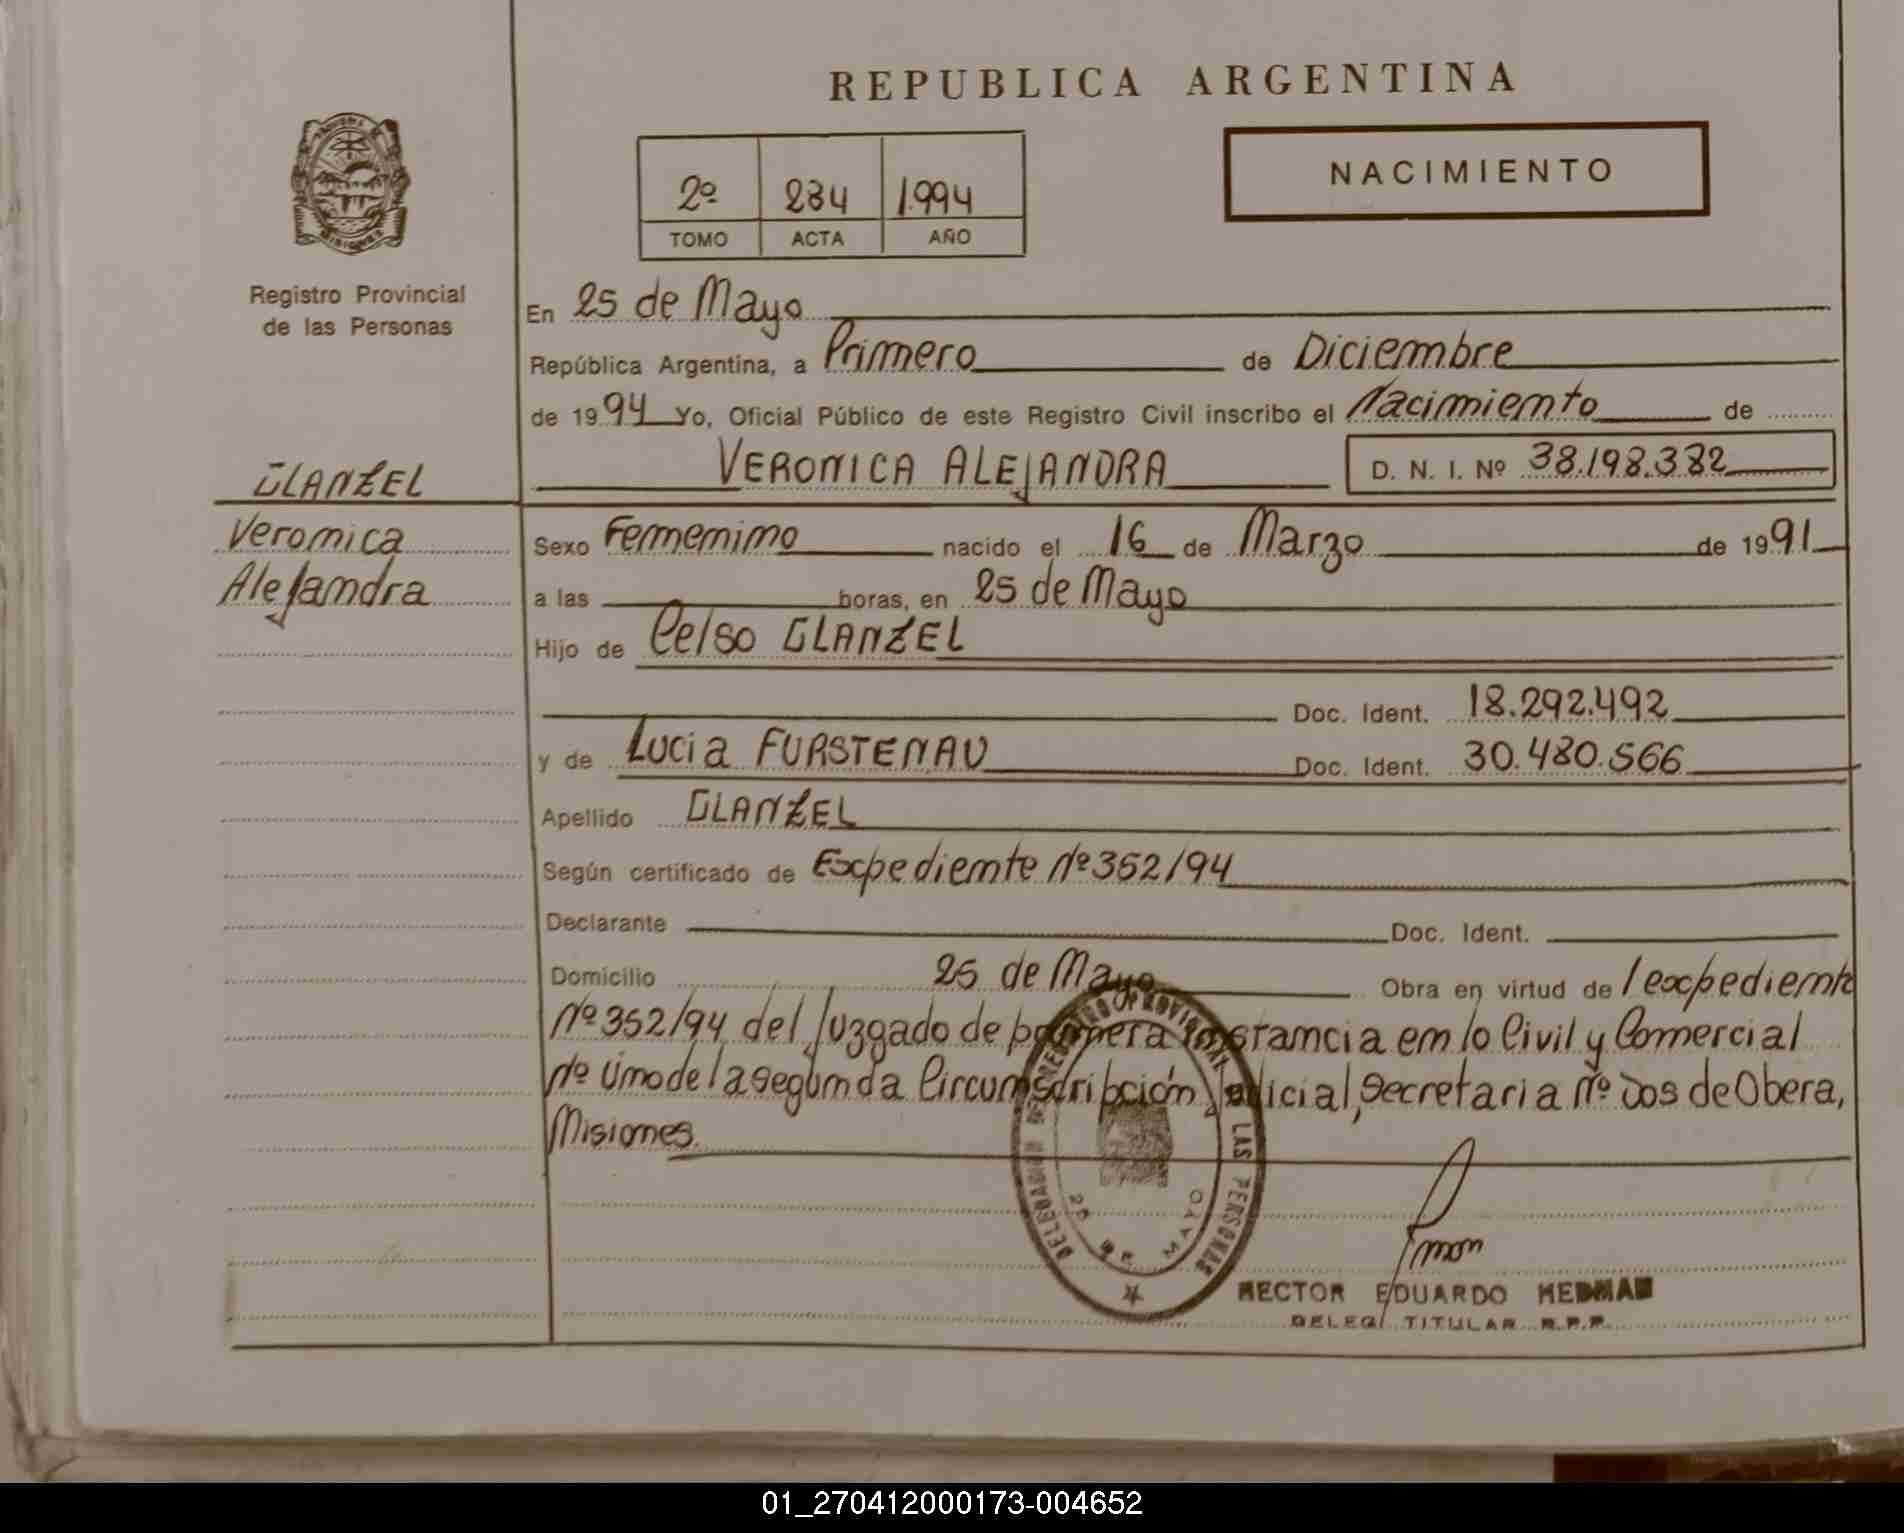 REPUBLICA ARGENTINA
NACIMIENTO
2º 284 1994
TOMO ACTA AÑO
MISIONES
Registro Provincial
de las Personas
En 25 de Mayo
República Argentina, a Primero de Diciembre
de 1994 Yo, Oficial Público de este Registro Civil inscribo el Nacimiento de
GLANZEL
VERONICA ALEJANDRA D. N. I. Nº 38.198.382
Veronica
Alejandra
Sexo Femenino nacido el 16 de Marzo de 1991
a las horas, en 25 de Mayo
Hijo de Celso GLANZEL
Doc. Ident. 18.292.492
y de Lucia FURSTENAU Doc. Ident. 30.480.566
Apellido GLANZEL
Según certificado de Expediente Nº 352/94
Declarante Doc. Ident.
Domicilio 25 de Mayo Obra en virtud del expediente
Nº 352/94 del Juzgado de primera instancia en lo Civil y Comercial
Nº Uno de la segunda Circunscripción Judicial, Secretaria Nº Dos de Obera,
Misiones.
DELEGACION DEL REGISTRO PROVINCIAL LAS PERSONAS
25 DE MAYO
HECTOR EDUARDO HEDMAN
DELEG. TITULAR R.P.P.
01_270412000173-004652